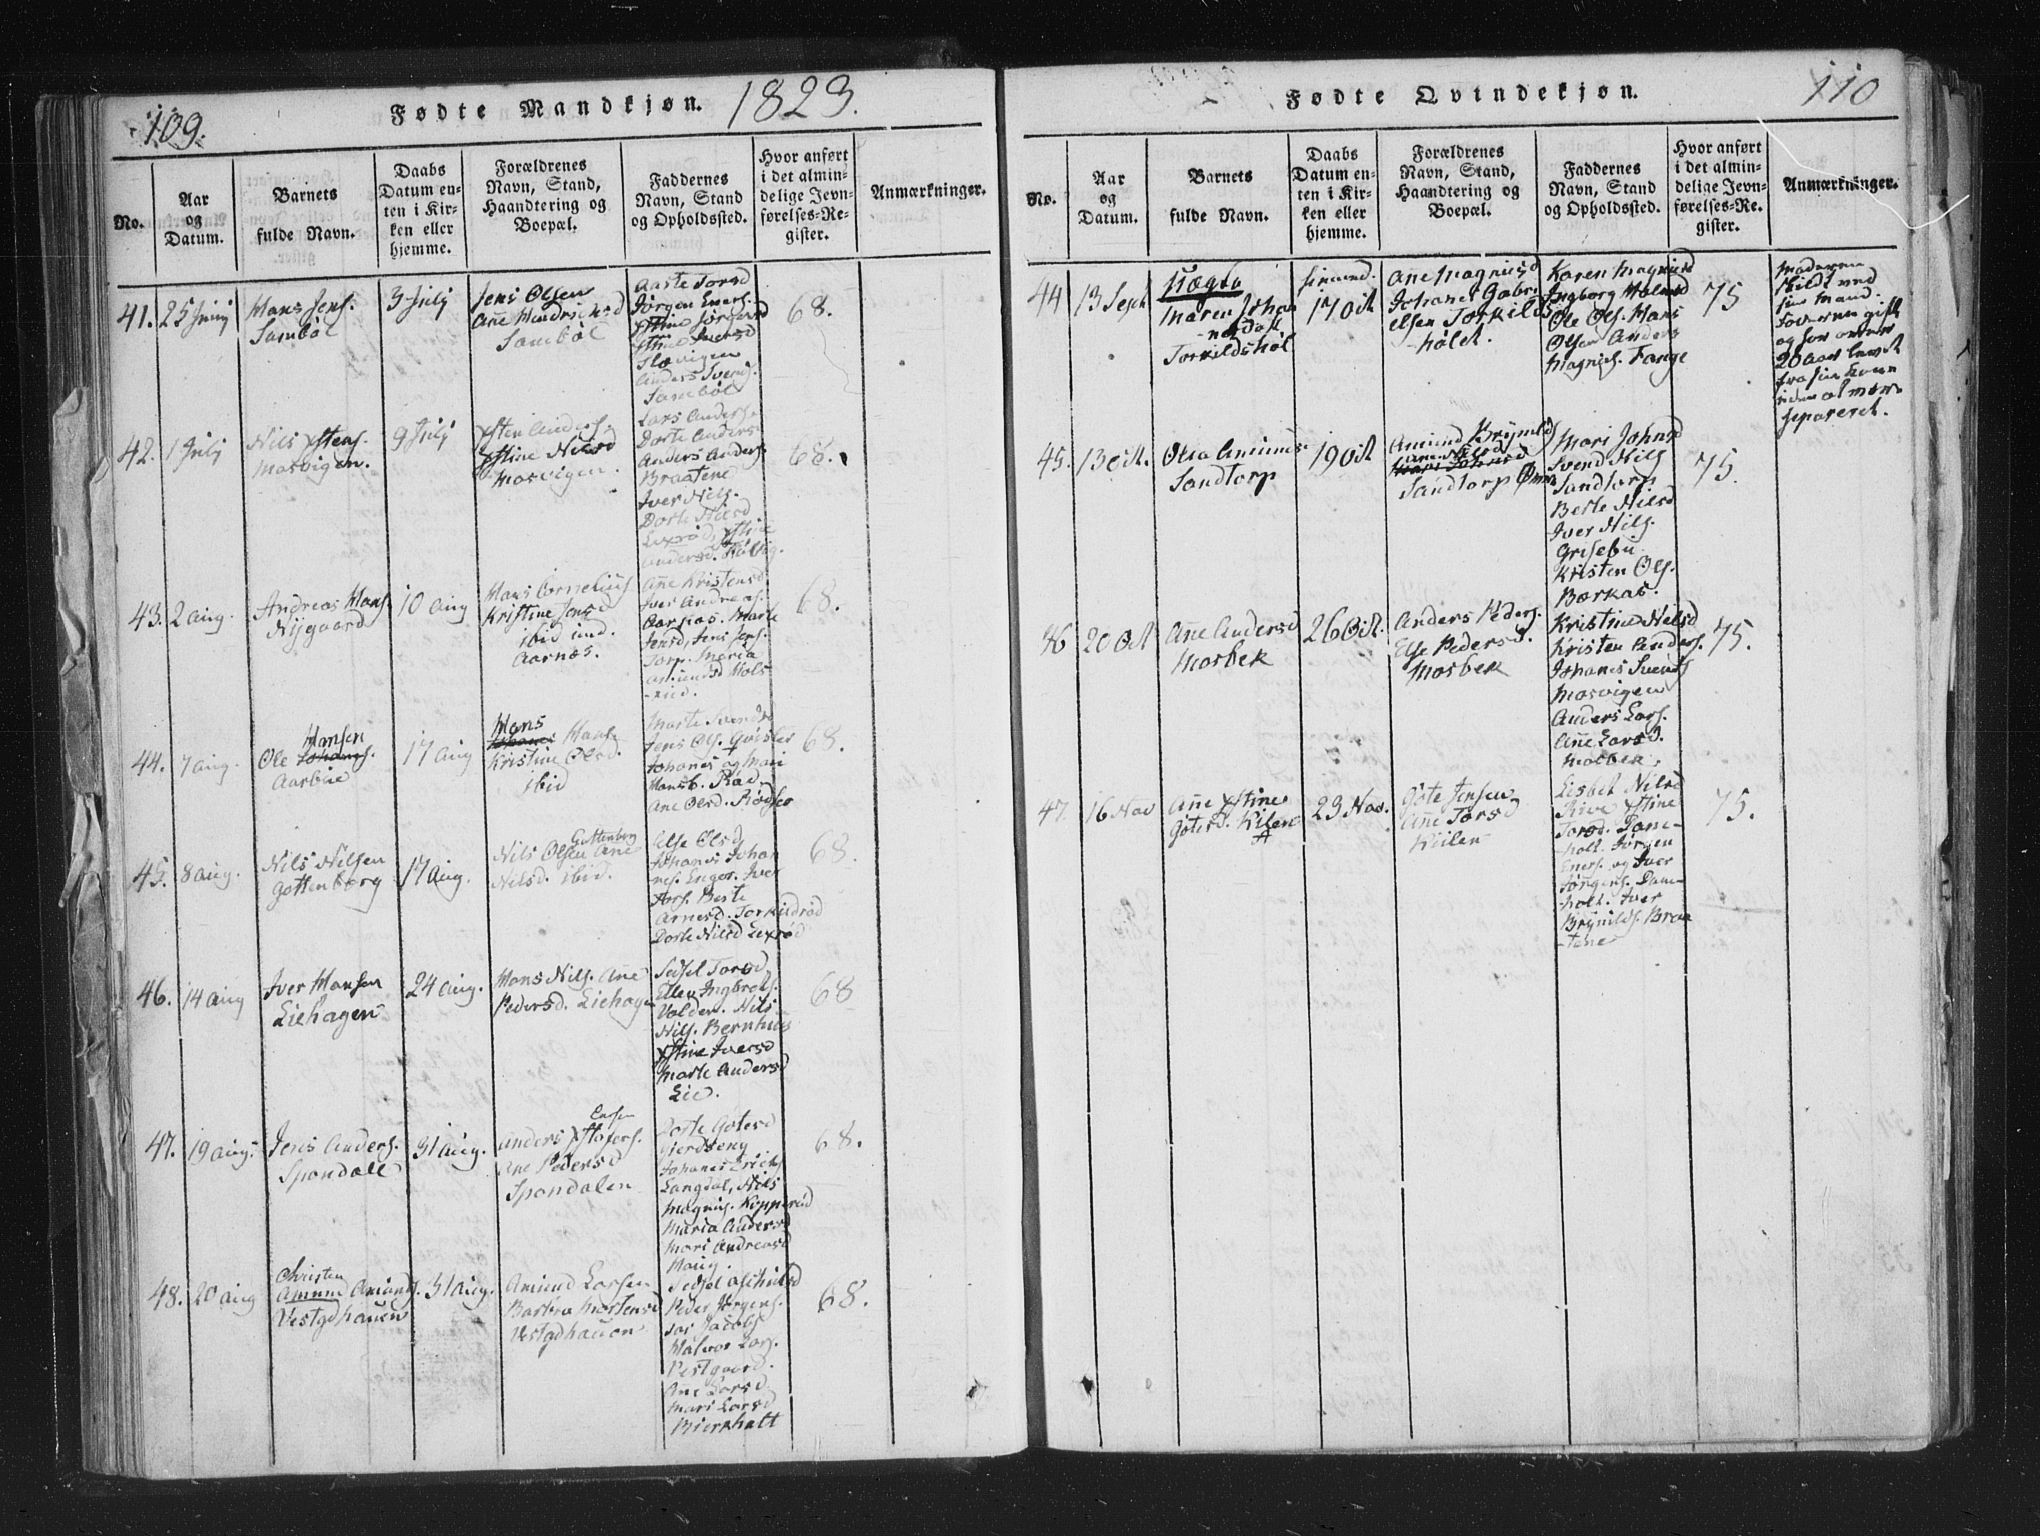 109.
Fødte Mandkjøn. 1823.
No.
Aar
og
Datum.
Barnets
fulde Navn.
Daabs
Datum en-
ten i Kir-
ken eller
hjemme.
Forældrenes
Navn, Stand,
Haandtering og
Boepæl.
Faddernes
Navn, Stand
og Opholdssted.
Hvor anført
i det almin-
delige Jevn-
førelses-Re-
gister.
Anmærkninger.
41.
25 Junj
Hans Jens.
Sambøl
3 Julj
Jens Olsen
Ane Hendrichsd
Sambøl
Aaste Torsd
Jørgen Eners.
Xstine Jørgensd
Xstine Iversd
Slævigen
Anders Svends.
Sambøl
68.
42.
1 Julj
Nils Xstens.
Mosvigen.
9 Julj
Xsten Anders.
Xstine Nilsd
Mosvigen.
Lars Anders.
Dorte Andersd
Anders Anders.
Braatene
Iver Nils.
Dorte Nilsd
Lexrød, Xstine
Andersd.
68.
43.
2 Aug.
Andreas Hans.
Nygaard
10 Aug
Hans Cornelius
Kristine Jensd
ibid ind.
Aarnæs.
Ane Kristensd.
Iver Andreas.
Aarnæs. Marte
Jensd, Jens Jens.
Torp. Maria
Amundsd Hols-
-rud.
68.
44.
7 Aug.
Hansen
Ole Johans.
Aarbue
17 Aug
Hans
Johanes Hans
Kristine Olsd.
ibid
Marte Svendsd
Jens Ols.
Johanes og Mari
Hansb. Rød
Ane Olsd. Rødsee
68.
45.
8 Aug.
Nils Nilsen
Gottenborg
17 Aug.
Guttenborg
Nils Olsen Ane
Nilsd. ibid.
Else Olsd
Johanes Johan
nes. Enger. Iver
Tors. Berte
Arnesd. Torkildrød
Dorte Nilsd Lexrød
68.
46.
14 Aug
Iver Hansen
Liehagen
24 Aug.
Hans Nils. Ane
Pedersd. Liehagen
Seisel Torsd
Ellen Ingbretsd.
Volden. Nils
Nils. Bernhuus
Xstine Iversd
Marte Andersd
Lie.
68
47.
19 Aug.
Jens Anders.
Spondall
31 Aug.
Anders Xstofers.
Ane Pedersd
Spondalen
Dorte Gotesd
Gierdseng
Johanes Erichs
Langdal, Nils
Magnus. Kopperød
Maria Andersd
Mari Andreasd
Haug.
68.
48.
20 Aug
Christen
Amund Amunds.
Vestgdhauen
31 Aug.
Amund Larsen
Barbra Mortensd
Vestgdhauen
Sedsel
Peder Jørgens.
Jacobs
Halvor Lars.
Vestgaard.
Ane Larsd
Mari Larsd
Bierkholt
68.
110
Fødte Qvindekjøn.
No.
Aar
og
Datum.
Barnets
fulde Navn.
Daabs
Datum en-
ten i Kir-
ken eller
hjemme.
Forældrenes
Navn, Stand,
Haandtering og
Boepæl.
Faddernes
Navn, Stand
og Opholdssted.
Hvor anført
i det almin-
delige Jevn-
førelses-Re-
gister.
Anmærkninger.
44
13 Sept
Uægte
Maren Johan
nesdatt
Torkildshøl
17 Oct
Ane Magnusd
Johanes Gabri
elsen Torkilds
-høldt.
Karen Magnusd
Ingborg Halvorsd
Ole Ols. Hans
Olsen Anders
Magnus. Tange
75
Moderen
skildt ved
sin Mand.
Faderen gift
og har over
20 aar levet
fra sin kone
uden at være
separeret.
45.
13 Oct.
Olea Amunds
Sandtorp
19 Oct
Amund Brynilds
Ane Nilsd
Mari Johnsd
Sandtorp
Mari Johnsd
Svend Nils
Sandtorp
Berte Nilsd
Iver Nils.
Grisebu
Kristen Ols.
Børkas.
75.
46
20 Oct
Ane Andersd
Mosbek
26 Oct.
Anders Peders.
Else Pedersd.
Mosbek
Kristine Nilsd
Kristen Anders.
Johanes Svends
Mosvigen
Anders Lars.
Ane Larsd.
Mosbek.
75.
47.
16 Nov
Ane Xstine
Gotesd. Kilen
23 Nov.
Gote Jensen
Ane Torsd
Kiilen
Lisbet Nilsd
Rive Xstine
Torsd. Dam-
holt. Jørgen
Eners. og Iver
Jørgens. Dam-
holt. Iver
Brynilds. Braa
-tene
75.